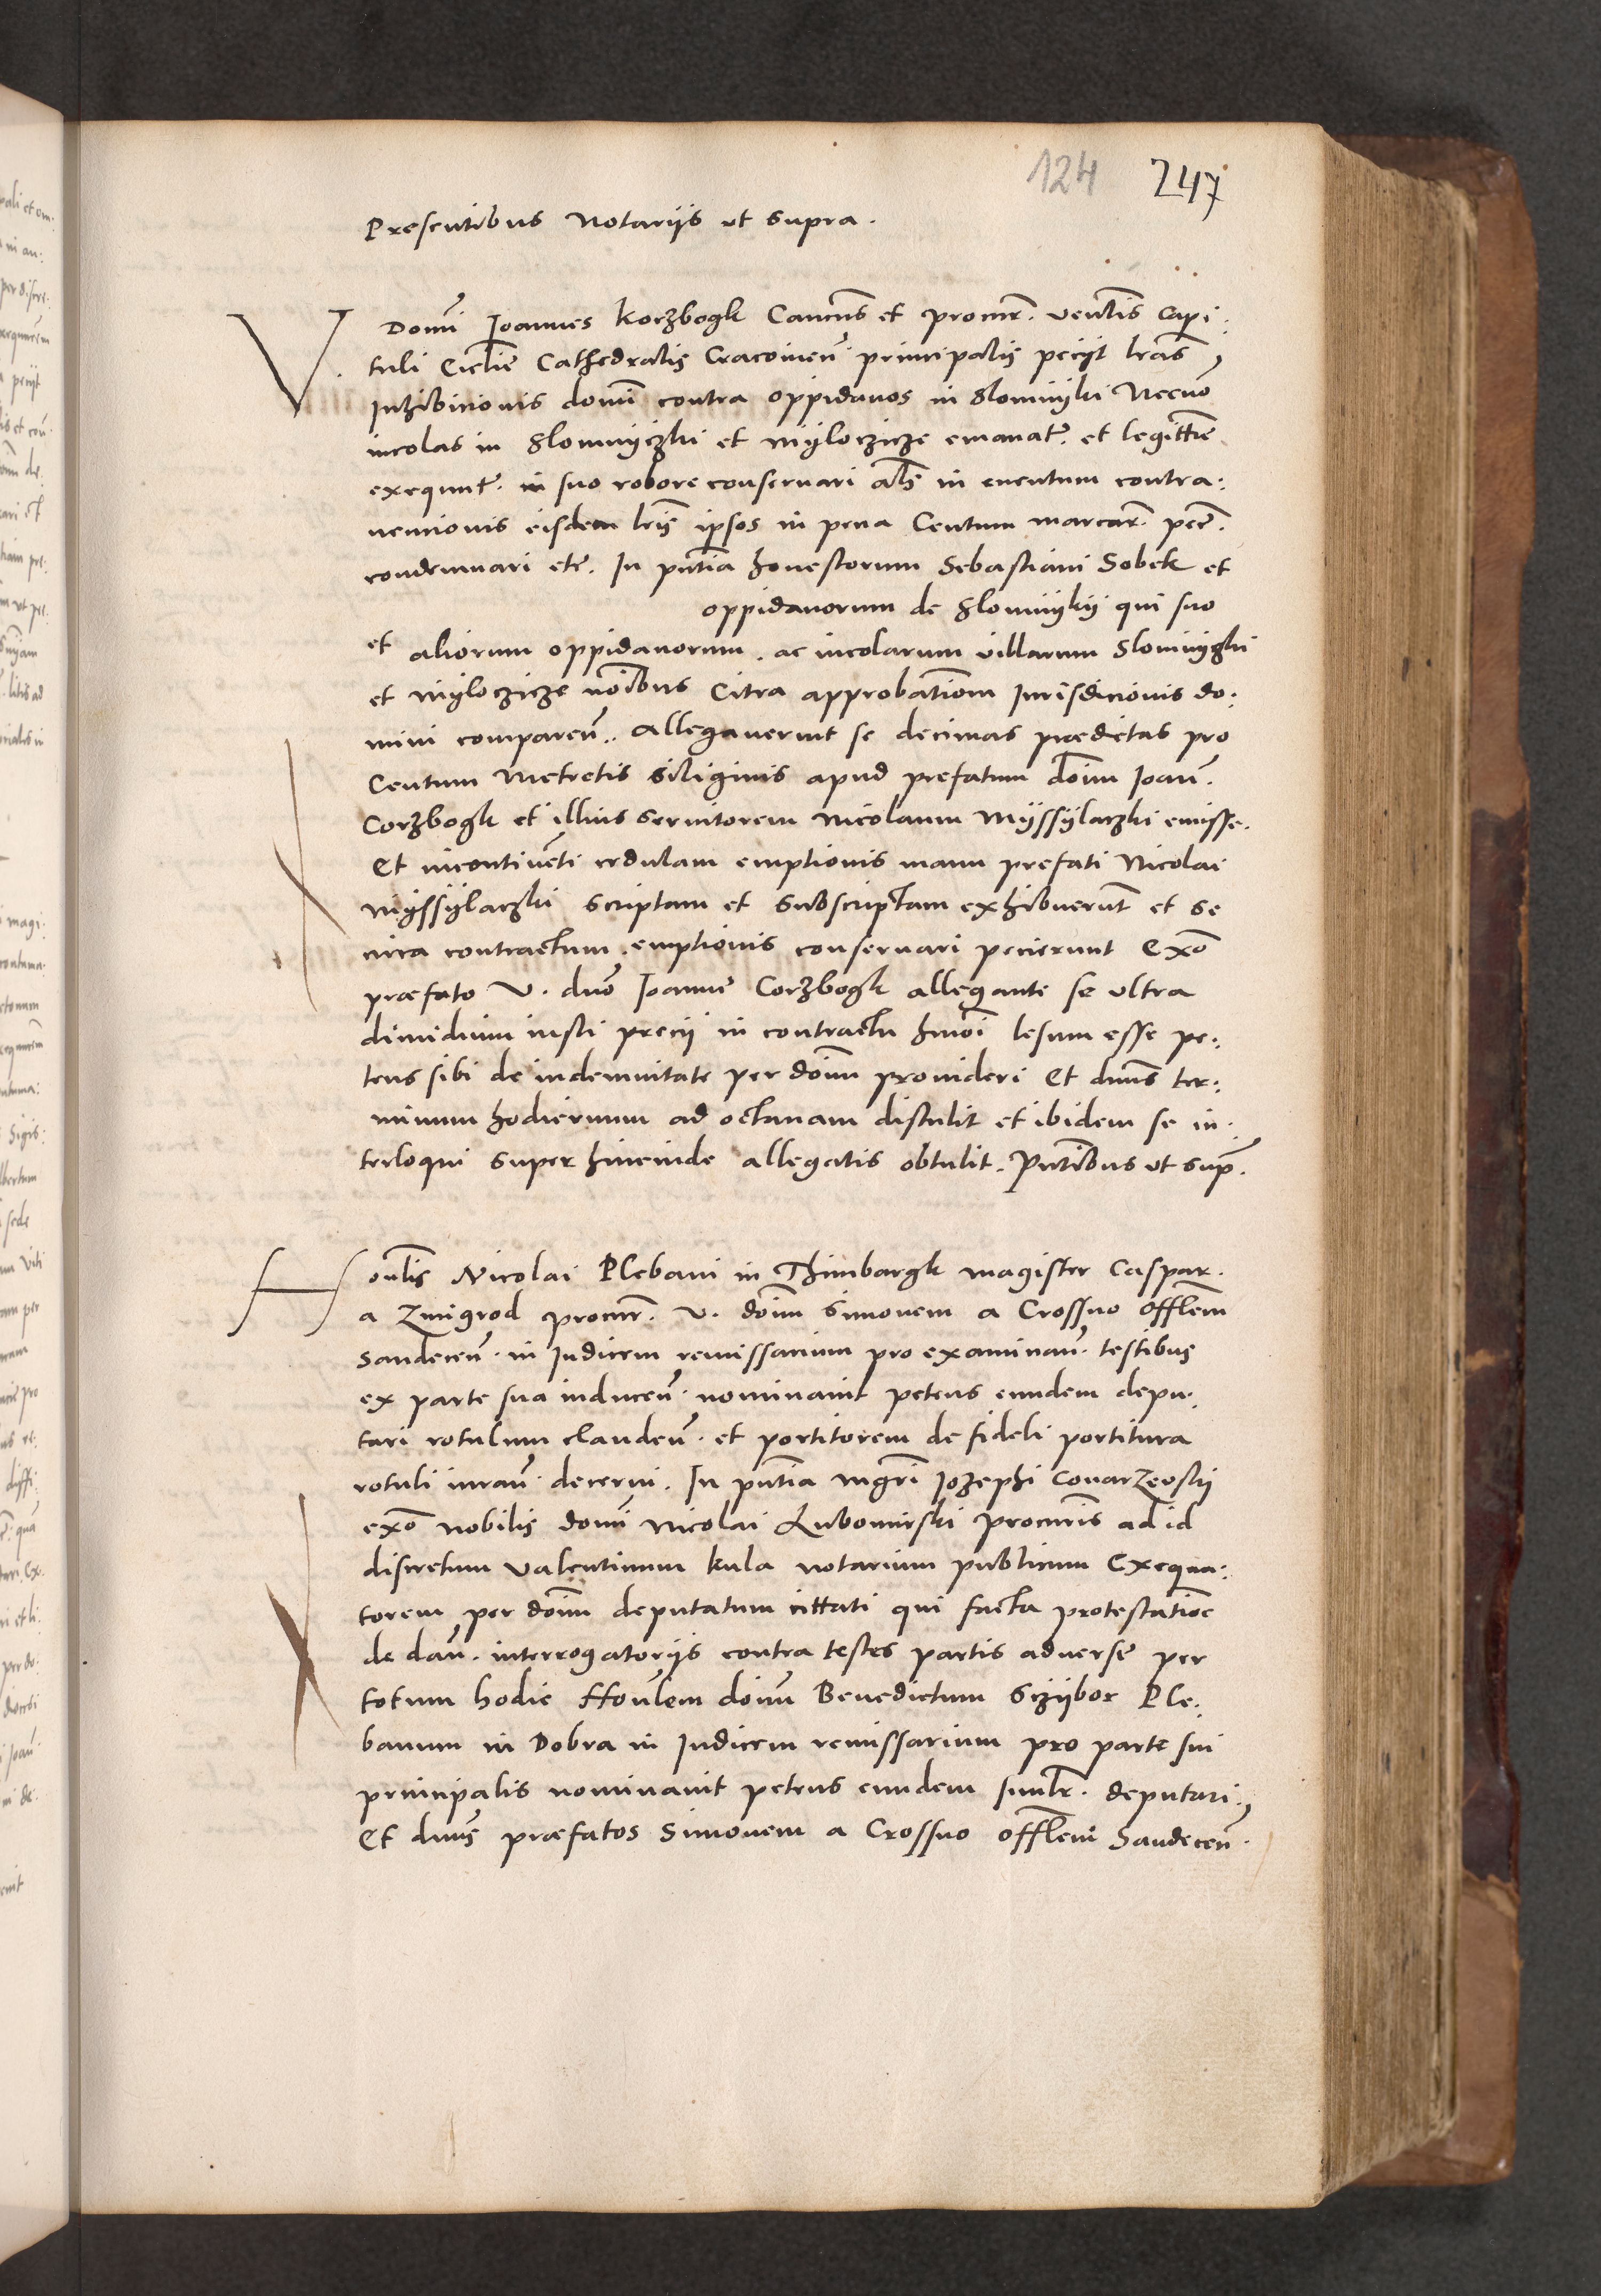 124 247
Presentibus Notariis ut supra.
V. Domī Joannes Korzbogk Cancus et procur. venlis Capi:
tuli Ecclie Cathedralis Cracovien. principalis peciit lras
Inhibicionis domī contra oppidanos in Slomnyki Necnō
incolas in Slomnyczki et Myloczicze emanatē. et legittie
exequut. in suo robore conservari als in eventum contra:
vencionis eisdem lris ipsos in pena Centum marcar. pec.
condemnari etc. In pntia honestorum Sebastiani Sobek et
oppidanorum de Slomnykij qui suo
et aliorum oppidanorum. ac incolarum villarum Slomnyzki
et Myloczicze noibus Citra approbationem Jurisdicionis do:
mini comparen̄. Allegaverunt se decimas prædictas pro
Centum Metretis siliginis apud prefatum doīm Joan̄.
Corzbogk et illius servitorem Nicolaum Myssylaczki emisse.
Et incontinēti cedulam emptionis manu prefati Nicolai
Myssylaczki scriptam et subscriptam exhibuerunt et se
circa contractum. emptionis conservari pecierunt Exō
præfato V. dnō Joanne Corzbogk allegante se ultra
dimidium iusti precii in contractu hmōi lesum esse pe:
tens sibi de indemnitate per doīm provideri Et dnus ter:
minum hodiernum ad octavam distulit et ibidem se in:
terloqui super hincinde allegatis obtulit. Pntibus ut sup.
Honlis Nicolai Plebani in Thimbargk magister Caspar.
a Zmigrod procur. V. doīm Simonem a Crossno Offlem
Sandecen̄. in Judicem remissarium pro examinan̄. testibus
ex parte sua inducen̄. nominavit petens eundem depu:
tari rotulum clauden̄. et portitorem de fideli portitura
rotuli iuran̄. decerni. In pntia mgri Jozephi Conarzewskij
exō nobilis domī Nicolai Lubomirski procuris ad id
discretum Valentinum Kula notarium publicum Exequu:
torem per doīm deputatum cittati qui facta protestatioe
de dan̄. interrogatoriis contra testes partis adverse per
totum hodie Honlem doīm Benedictum Sczijbor Ple:
banum in Dobra in Judicem remissarium pro parte sui
principalis nominavit petens eundem similr. deputari.
Et dnus præfatos Simonem a Crossno Offlem Sandecen̄.